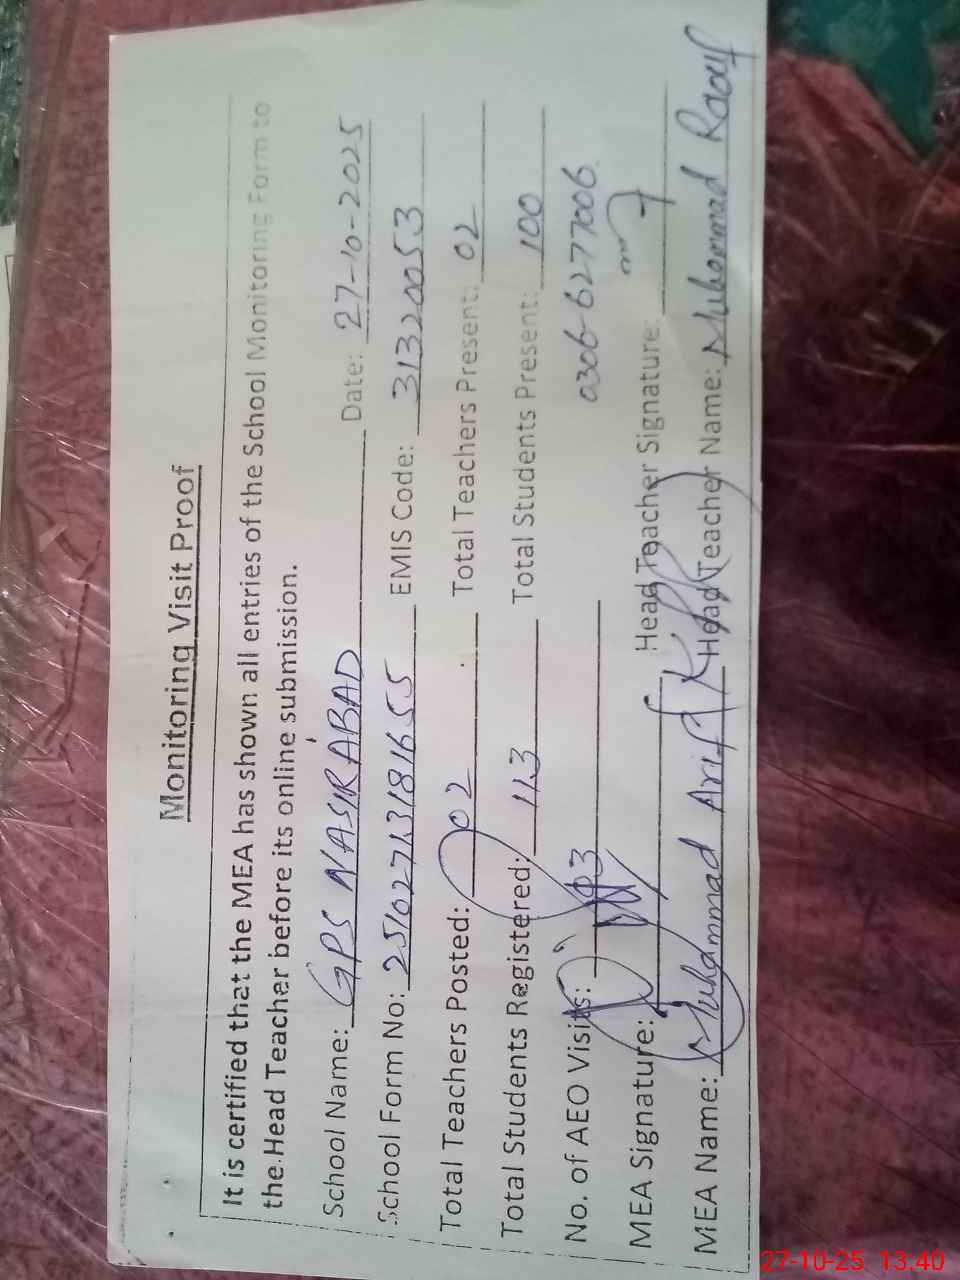 Monitoring Visit Proof
It is certified that the MEA has shown all entries of the School Monitoring Form to
the Head Teacher before its online submission.
School Name: GPS NASIRABAD Date: 27-10-2025
School Form No: EMIS Code: 31320053
Total Teachers Posted: 02 Total Teachers Present: 02
Total Students Registered: 113 Total Students Present: 100
No. of AEO Visits: 03 0306-6277006
MEA Signature: Head Teacher Signature:
MEA Name: Muhammad Arif Head Teacher Name: Muhammad Raouf
27-10-25 13:40